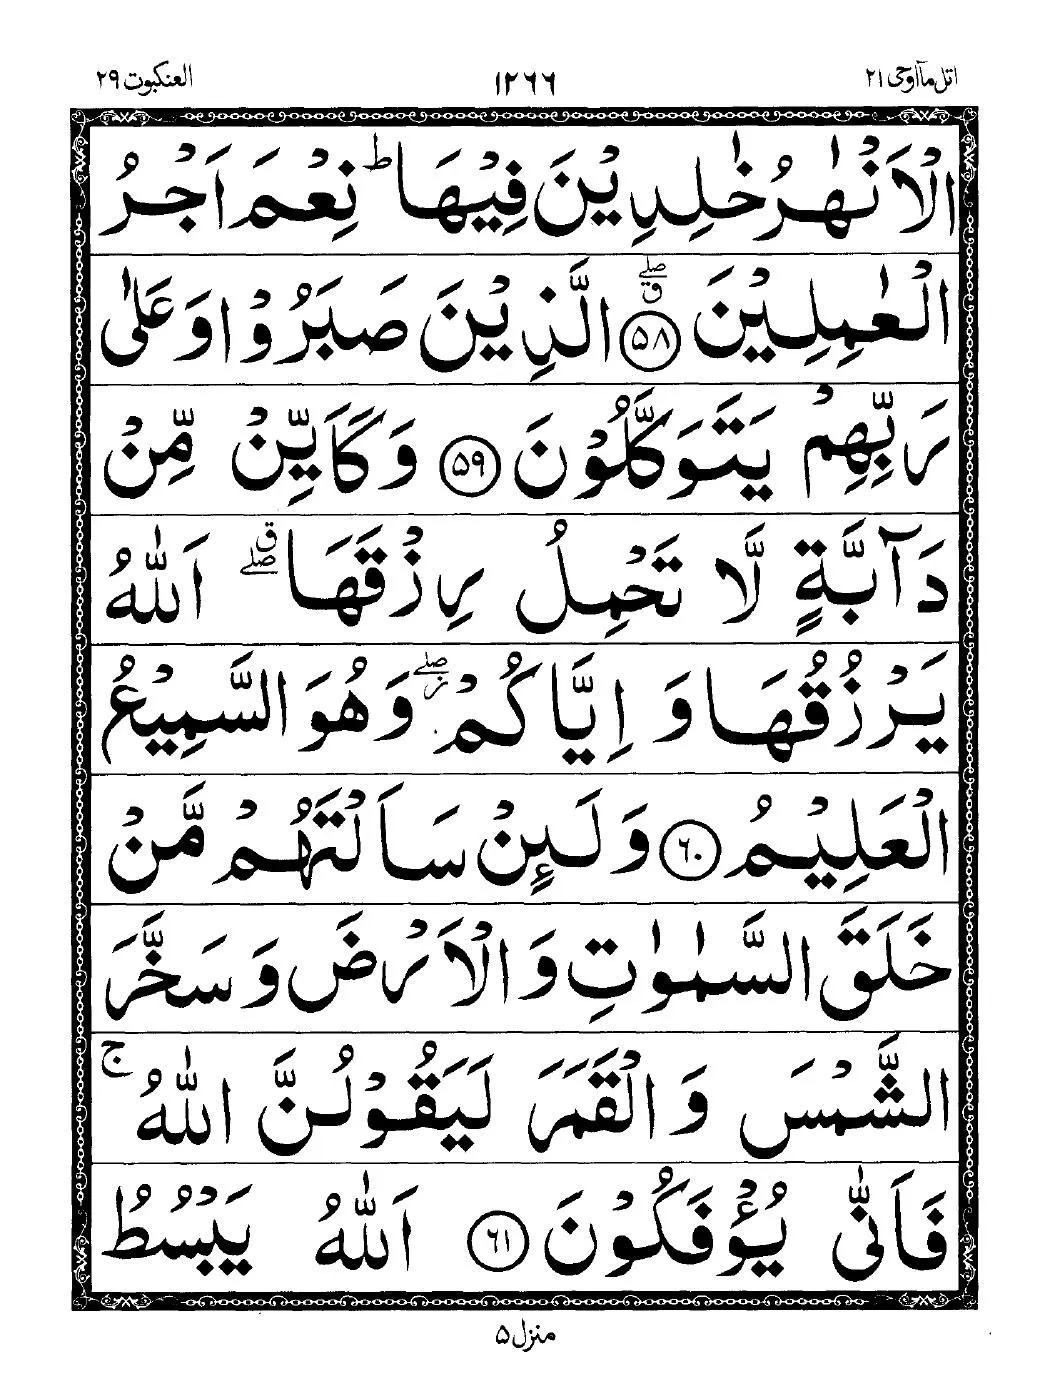 اتل مآاوحی ۲۱ ۱۲۶۶ العنکبوت ۲۹
الْاَنْهٰرُ خٰلِدِيْنَ فِيْهَا ؕ نِعْمَ اَجْرُ
الْعٰمِلِيْنَ ۖۗ ۵۸ الَّذِيْنَ صَبَرُوْا وَ عَلٰى
رَبِّهِمْ يَتَوَكَّلُوْنَ ۵۹ وَ كَاَيِّنْ مِّنْ
دَآبَّةٍ لَّا تَحْمِلُ رِزْقَهَا ۖۗ اَللّٰهُ
يَرْزُقُهَا وَ اِيَّاكُمْ ۖز وَ هُوَ السَّمِيْعُ
الْعَلِيْمُ ۶۰ وَ لَىِٕنْ سَاَلْتَهُمْ مَّنْ
خَلَقَ السَّمٰوٰتِ وَ الْاَرْضَ وَ سَخَّرَ
الشَّمْسَ وَ الْقَمَرَ لَيَقُوْلُنَّ اللّٰهُ ۚ
فَاَنّٰى يُؤْفَكُوْنَ ۶۱ اَللّٰهُ يَبْسُطُ
منزل ۵